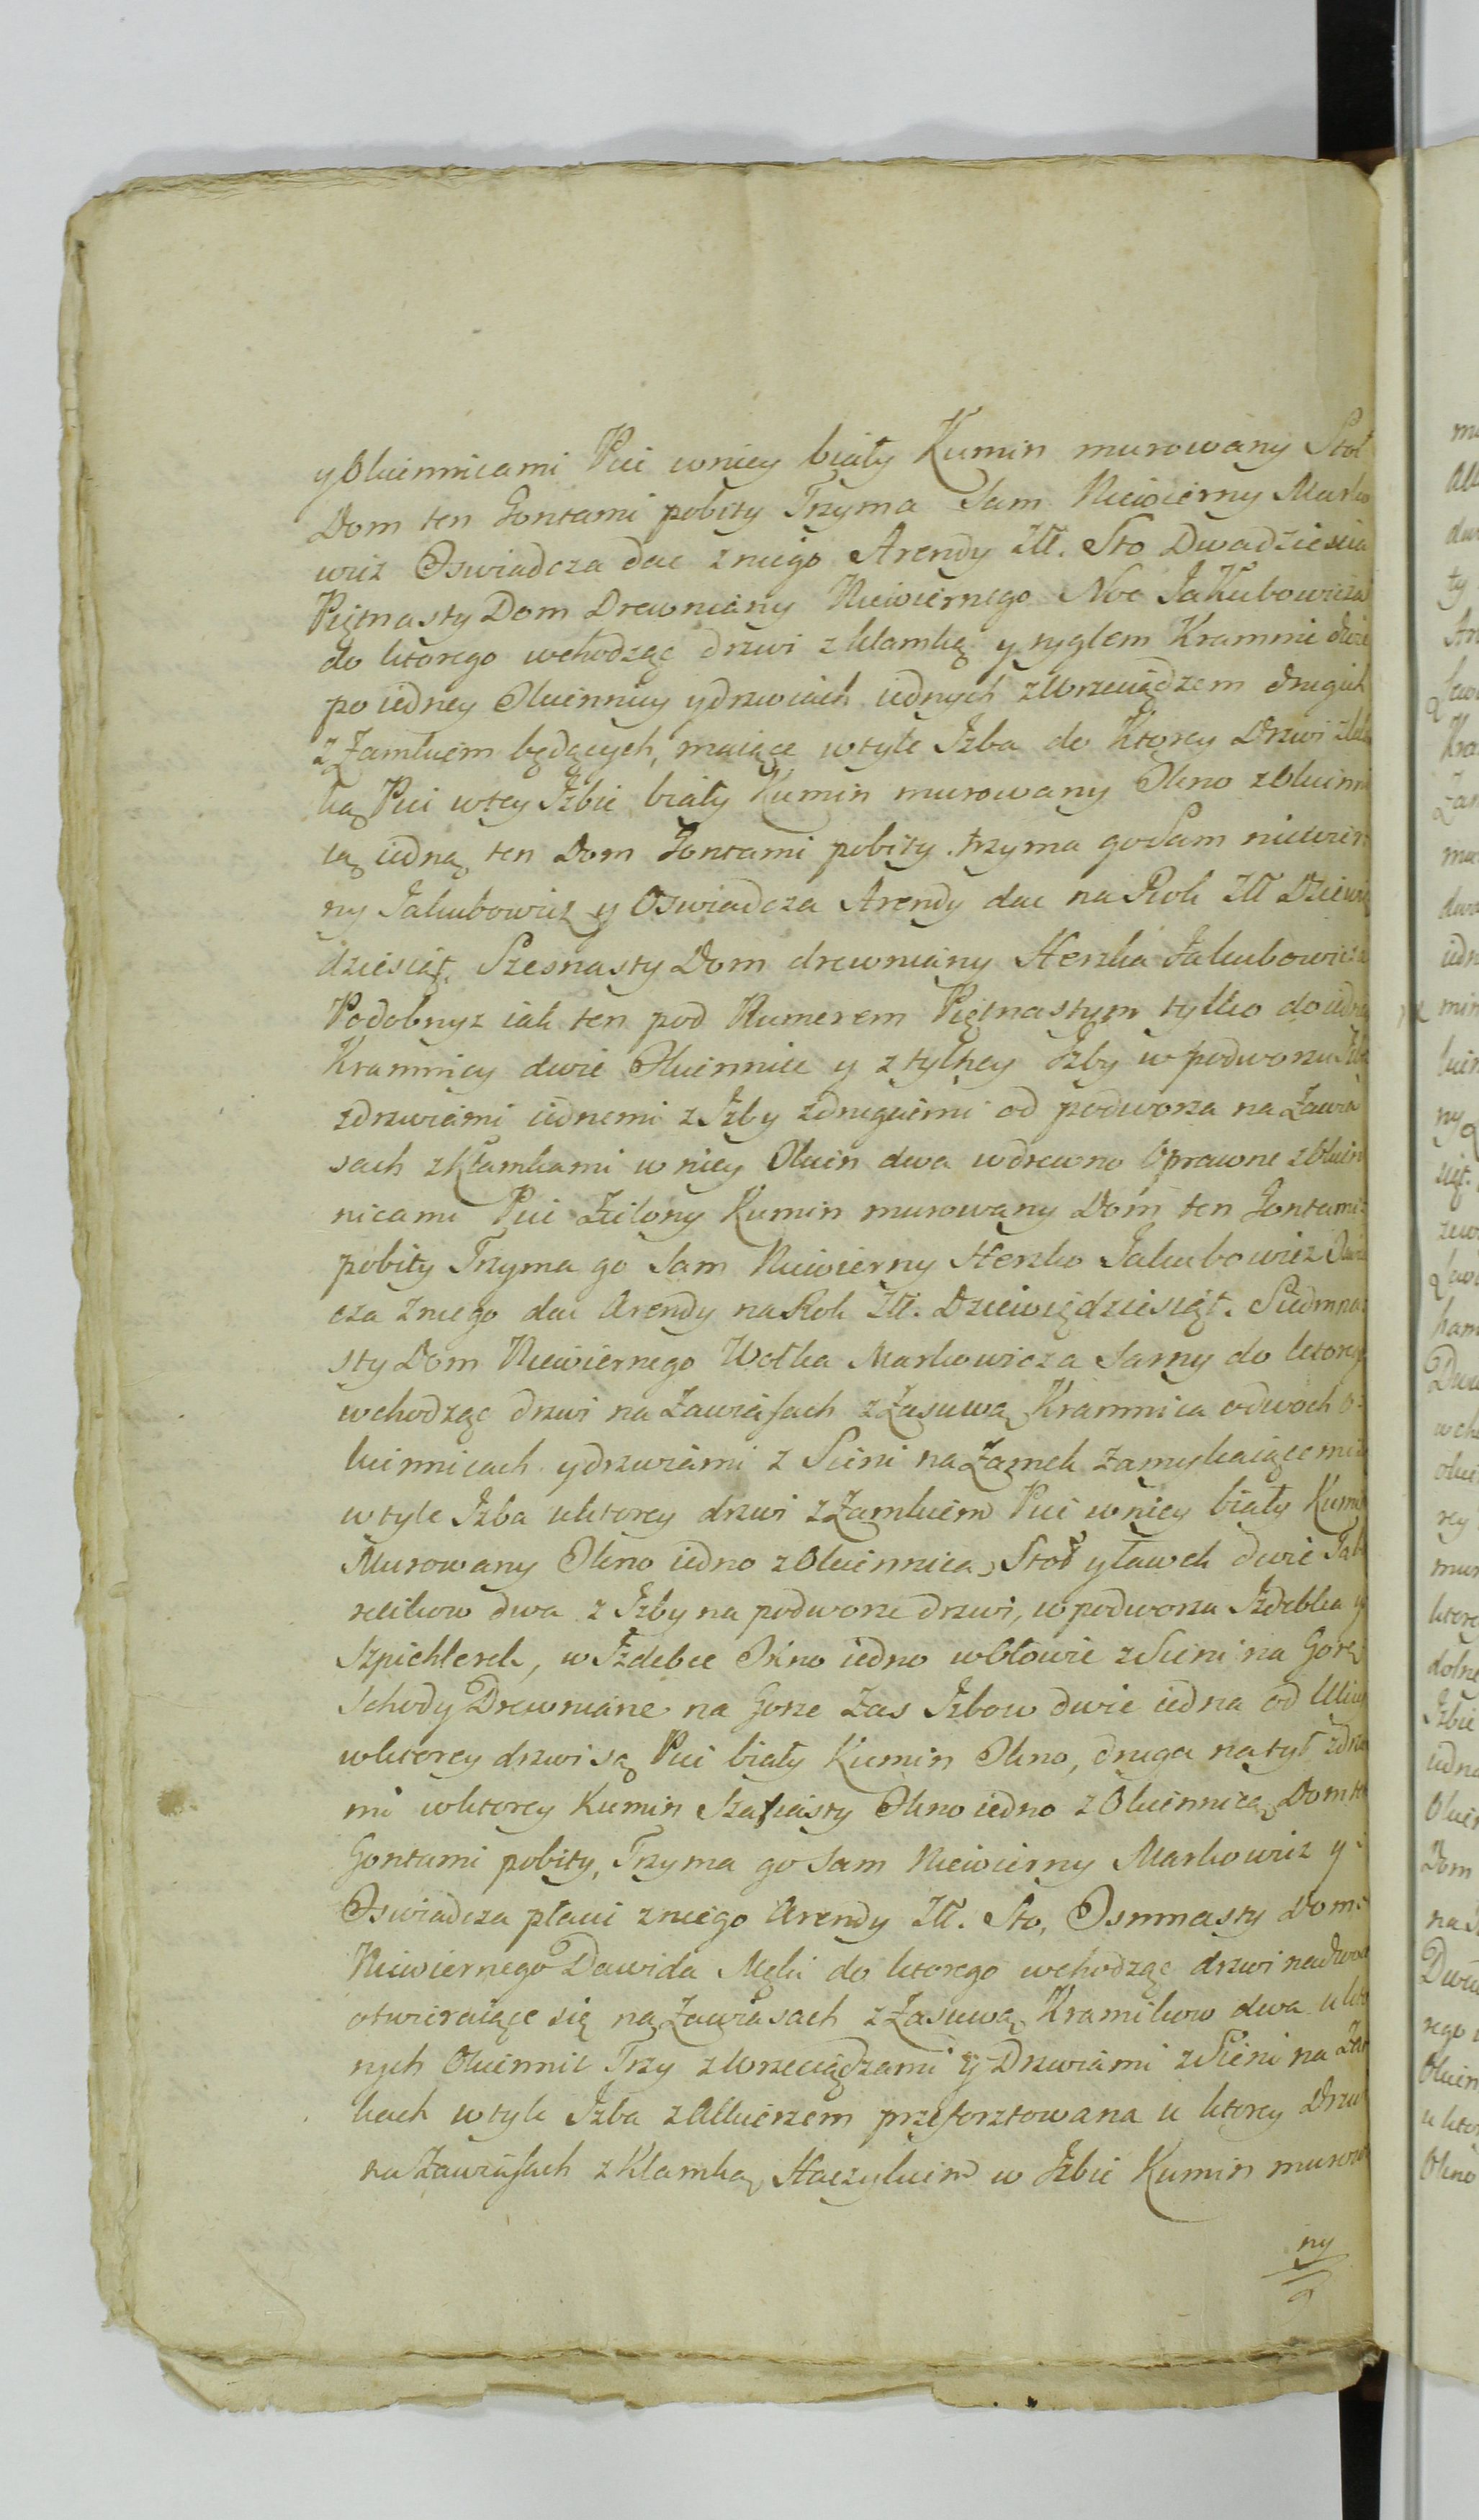 y Okiennicami Piec wniey biały Kumin murowany Stoł
Dom ten Gontami pobity Trzyma Sam Niewierny Marko
wicz Oswiadcza dac zniego Arendy Złł. Sto Dwadziescia
Piętnasty Dom Drewniany Niewiernego Noe Jakubowicza
do ktorego wchodząc drzwi z klamką y ryglem Kramnic dwie
po iedney Okiennicy y drzwiach iednych z Wrzeciądzem drugich
z Zamkiem będących, maiące wtyle Izba do Ktorey Drzwi z kla
ką Piec wtey Izbie biały Kumin murowany Okno z Okienni
cą iedną ten Dom Gontami pobity trzyma go Sam niewier
ny Jakubowicz y Oswiadcza Arendy dac na Rok Złł Dziewię
dziesiąt, Szesnasty Dom drewniany Herszka Jakubowicza
Podobnyz iak ten pod Numerem Piętnastym tylko do iedney
Kramnicy dwie Okiennice y z tylney Izby w podworzu Izba
zdrzwiami iednemi z Izby zdrugiemi od podworza na Zawia
sach z Klamkami w niey Okien dwa wdrewno Oprawne z Okien
nicami Piec Zielony Kumin murowany Dom ten Gontami
pobity Trzyma go Sam Niewierny Herszko Jakubowicz Oswia
cza Zniego dac Arendy na Rok Złł. Dziewiędziesiąt. Siedmna
sty Dom Niewiernego Wolka Markowicza Sarny do ktorego
wchodząc drzwi na Zawiasach z Zasuwą Kramnica odwoch o
kiennicach y drzwiami z Sieni na Zamek zamykaiącemi
wtyle Izba uktorey drzwi z Zamkiem Piec wniey biały Kumin
Murowany Okno iedno z Okiennicą, Stoł y ławek dwie Tabo
recikow dwa z Izby na podworze drzwi, w podworzu Izdebka y
Szpichlerek, w Izdebce Okno iedno wOłowie z Sieni na Gorę
Schody Drewniane na Gorze zas Izbow dwie iedna od Ulicy
wktorey drzwi są Piec biały Kumin Okno, druga na tył z drzwia
mi wktorey Kumin Szafiasty Okno iedno z Okiennicą Dom ten
Gontami pobity, Trzyma go Sam Niewierny Markowicz y
Oswiadcza płaci zniego Arendy Złł. Sto, Osmnasty Dom
Niewiernego Dawida Męki do ktorego wchodząc drzwi nadwoie
otwieraiące się na Zawiasach z Zasuwą Kramikow dwa ukto
rych Okiennic Trzy z Wrzeciądzami y Drzwiami z Sieni na Zam
kach wtyle Izba z Alkierzem przeforsztowana u ktorey Drzwi
na Zawiasach z Klamką Haczykiem w Izbie Kumin murowa
ny